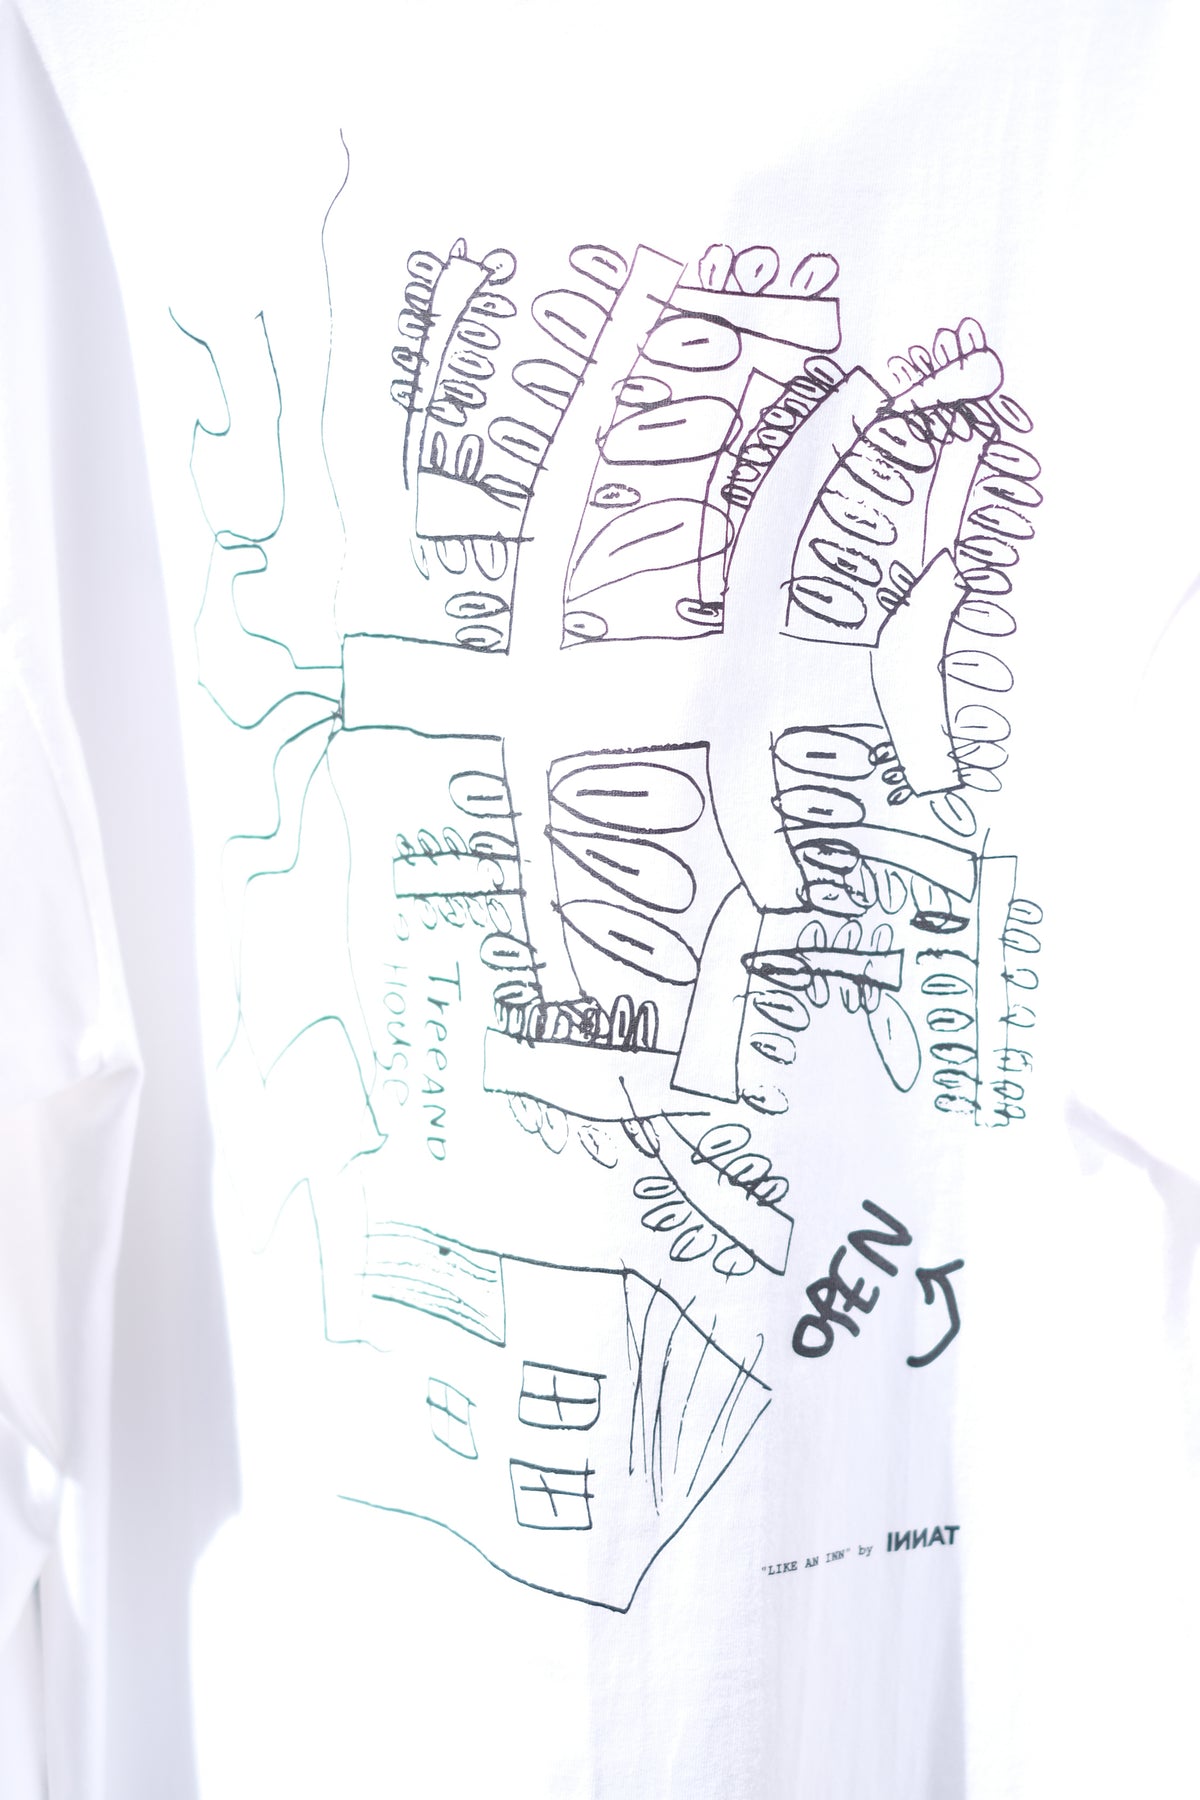 TreeAND
House
OPEN
"LIKE AN INN" by INNAT